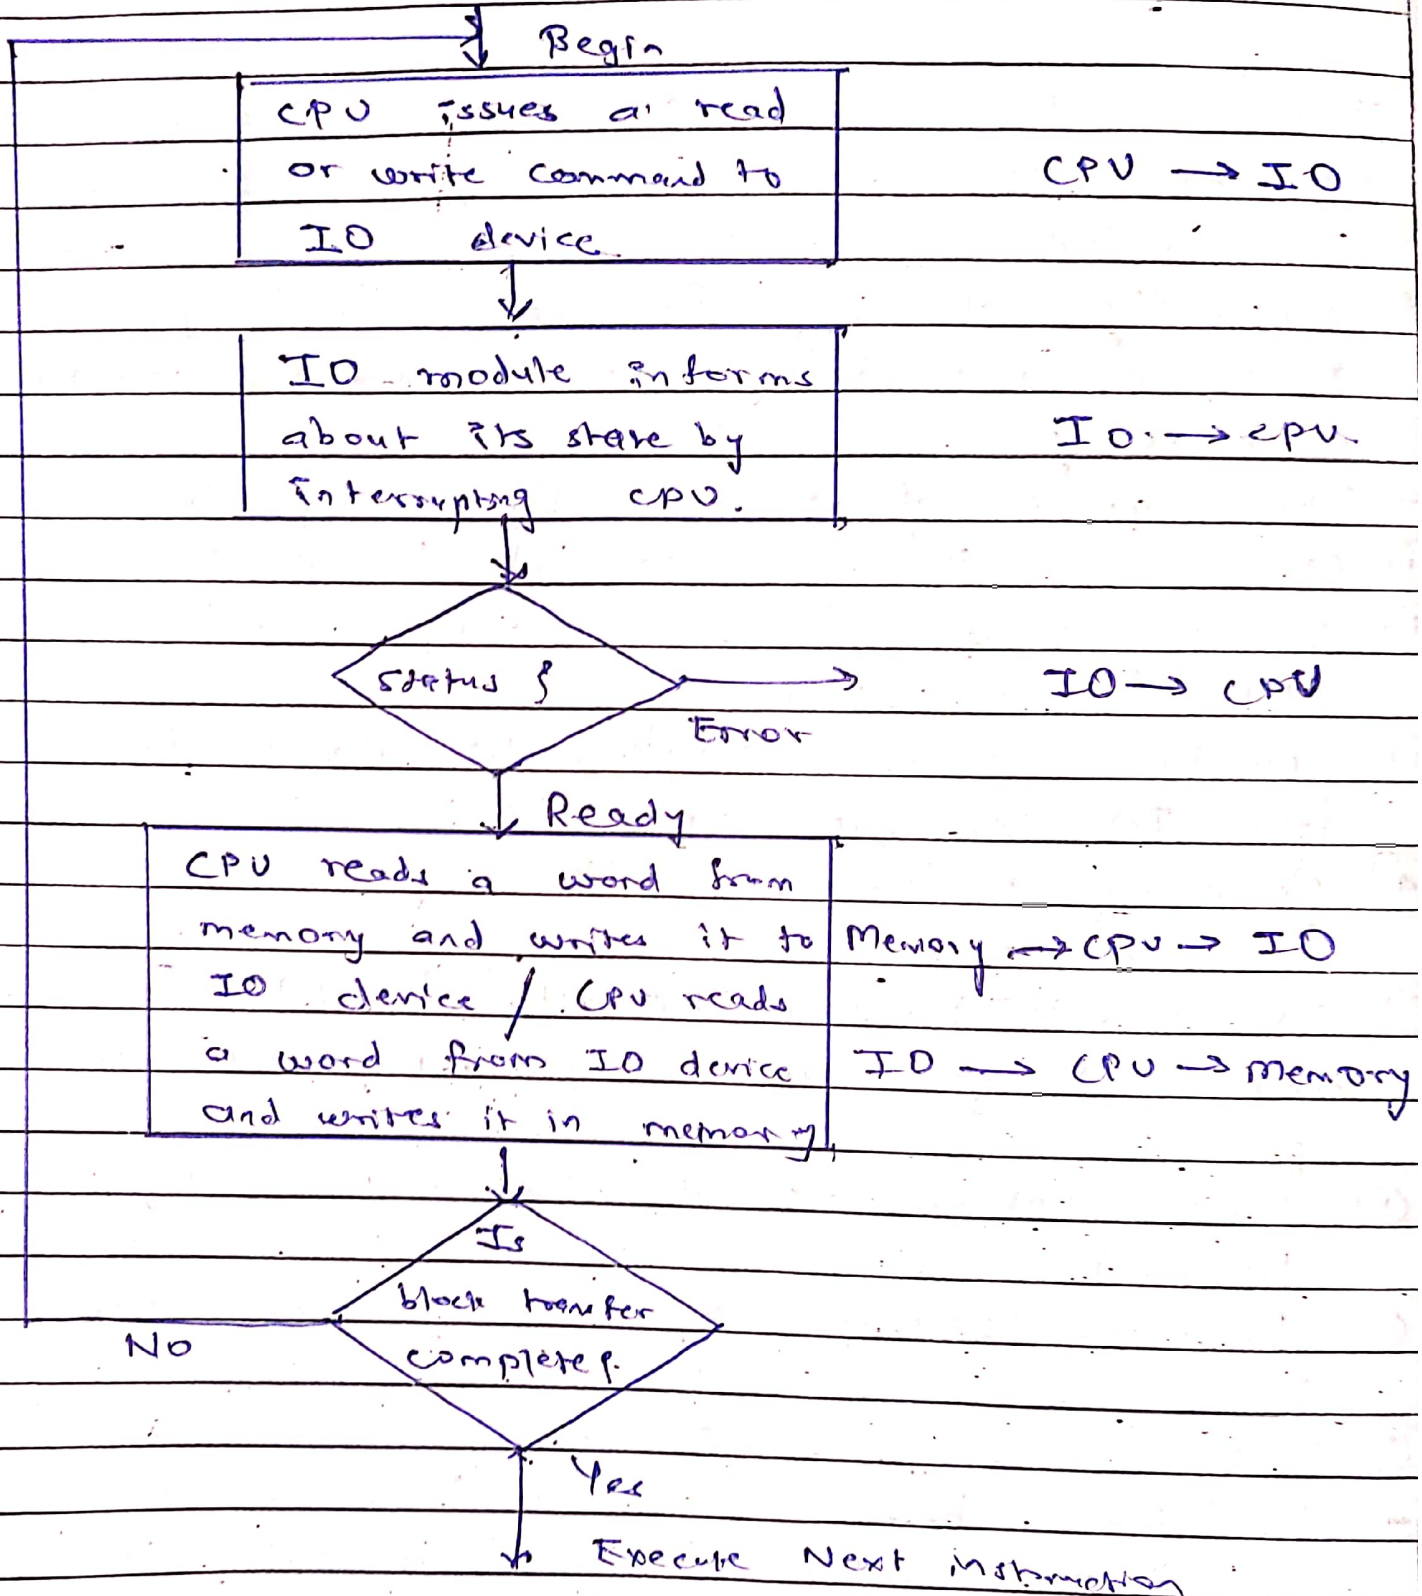 Begin
CPU issues a read
or write command to
IO device.
CPU → IO
IO module informs
about its state by
interrupting CPU.
IO → CPU.
status ?
Error
IO → CPU
Ready
CPU reads a word from
memory and writes it to
IO device / CPU reads
a word from IO device
and writes it in memory
Memory → CPU → IO
IO → CPU → Memory
Is
block transfer
complete ?
No
Yes
Execute Next instruction